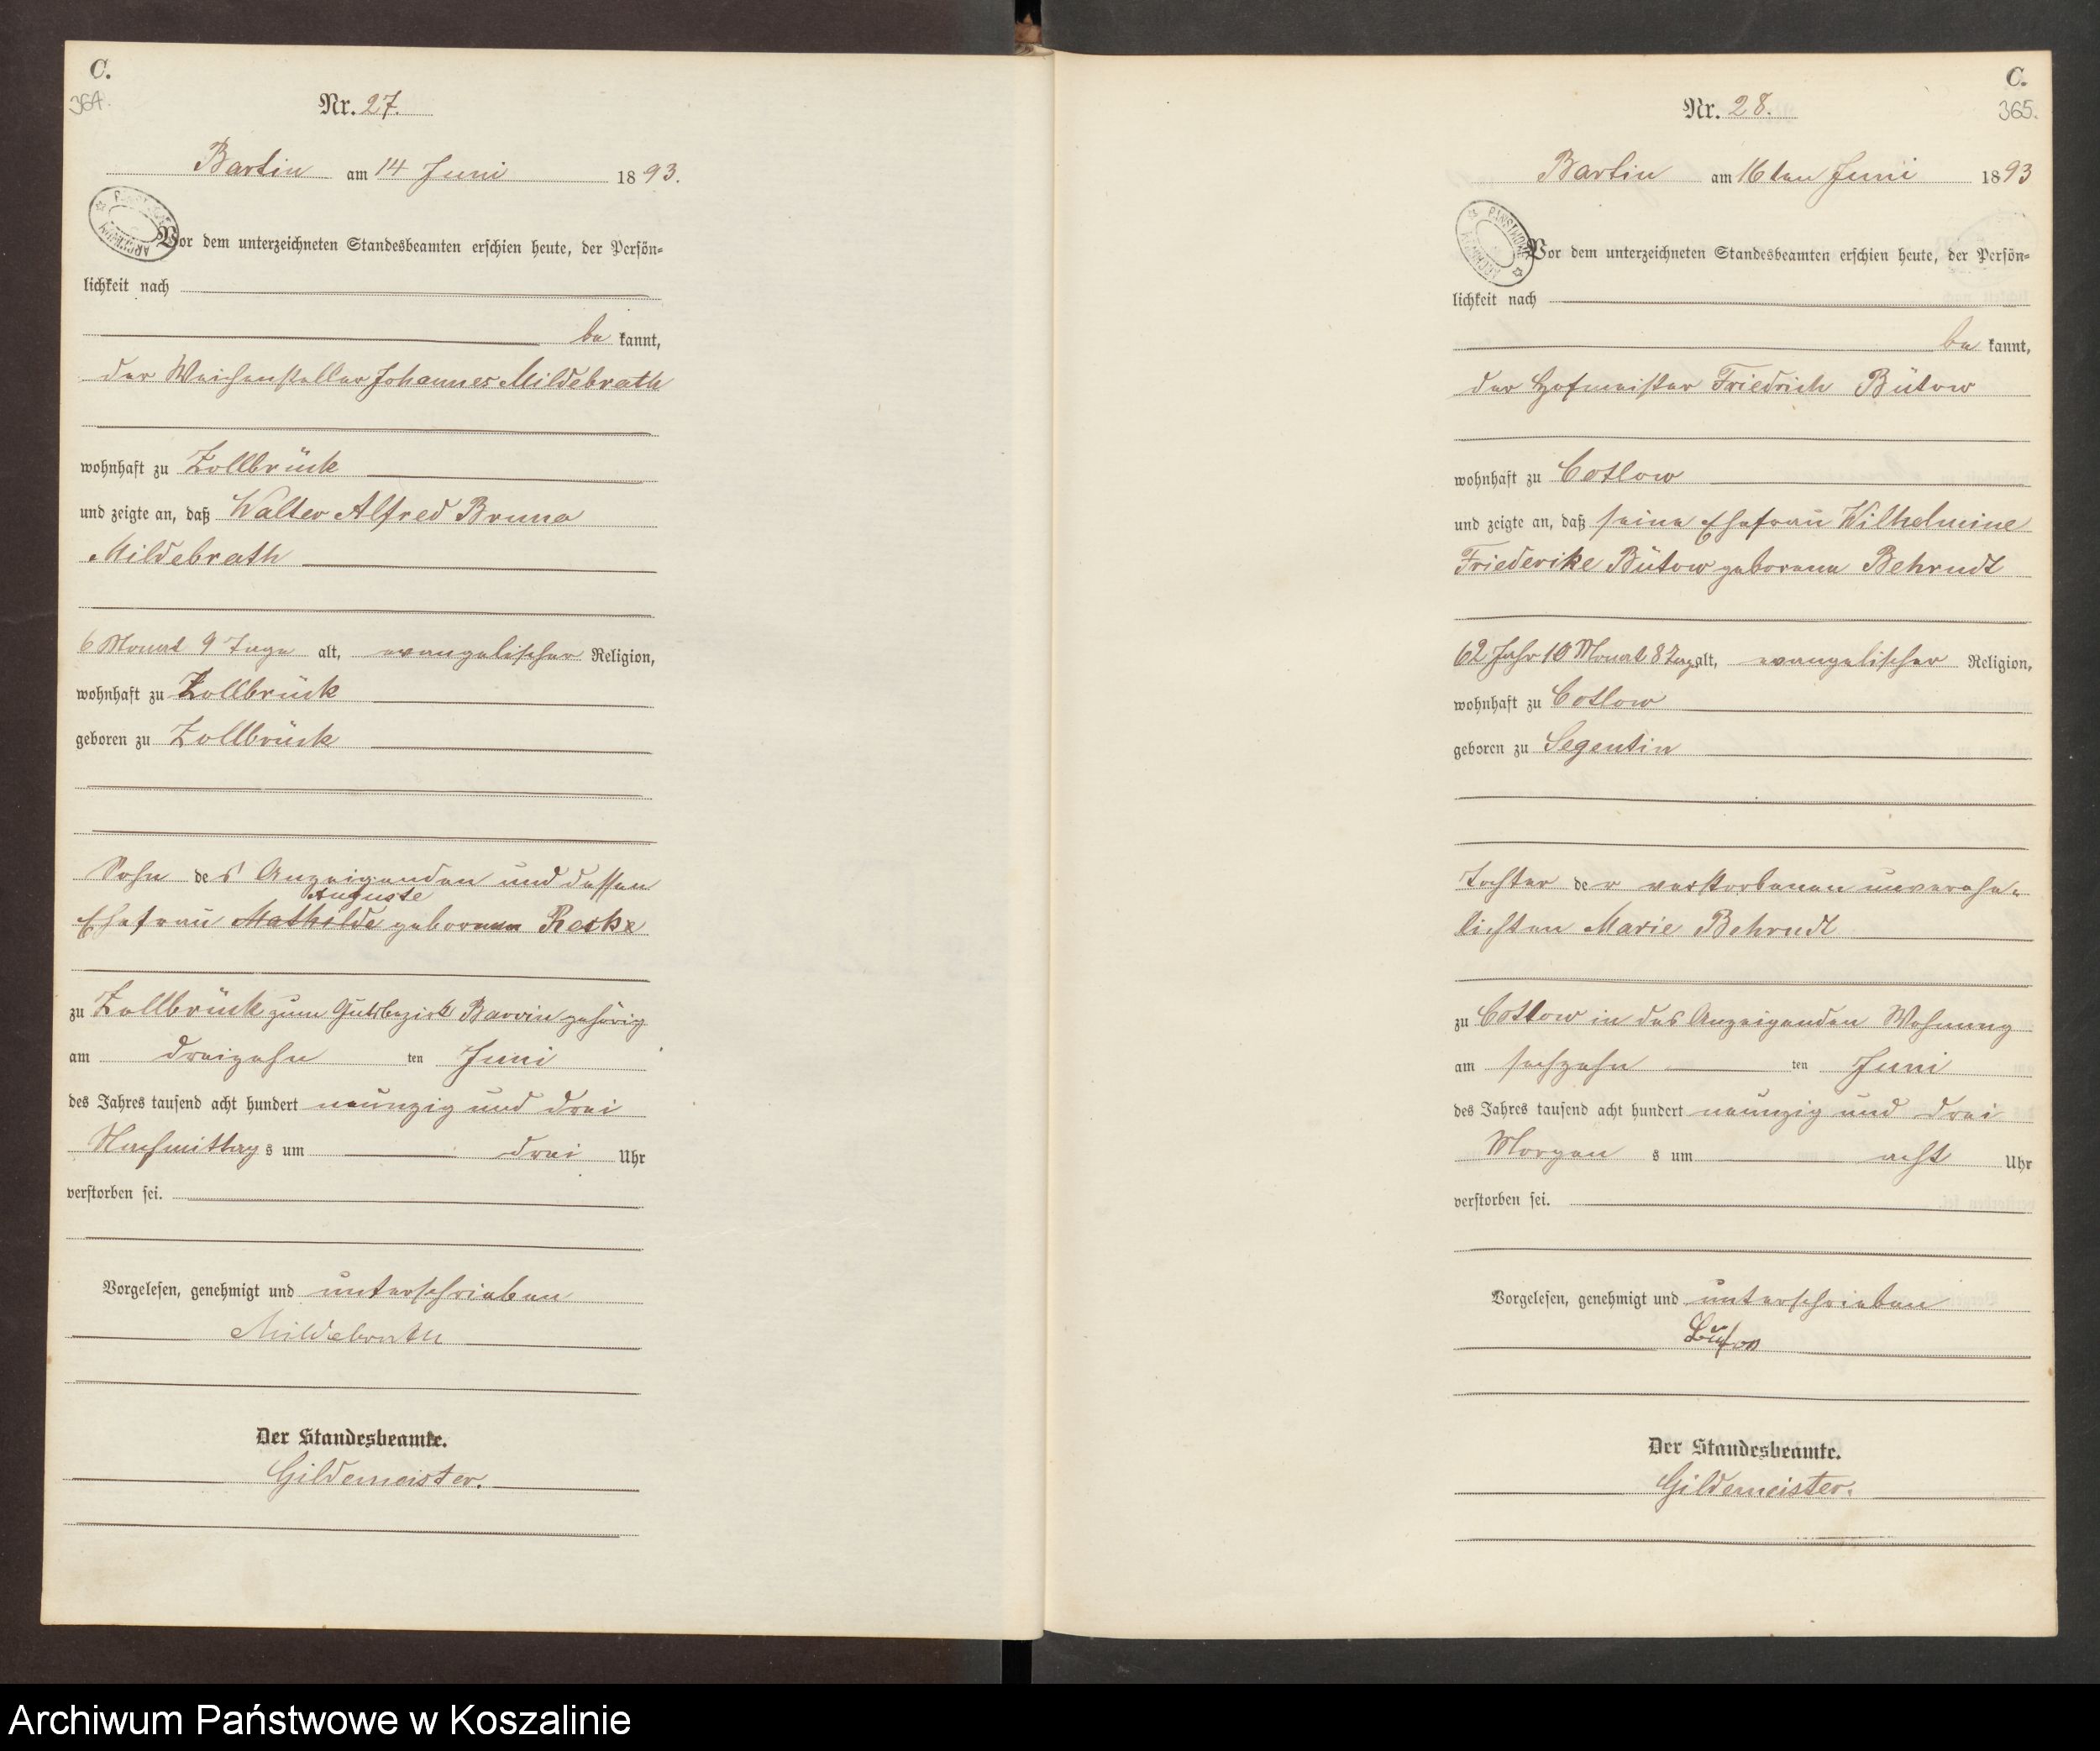 C.
364.
Nr. 27.
Bartin am 14 Juni 1893.
Vor dem unterzeichneten Standesbeamten erschien heute, der Persön=
lichkeit nach
be kannt,
der Weichensteller Johannes Mildebrath
wohnhaft zu Zollbrück
und zeigte an, daß Walter Alfred Bruno
Mildebrath
6 Monat 9 Tage alt, evangelischer Religion,
wohnhaft zu Zollbrück
geboren zu Zollbrück
Sohn des Anzeigenden und dessen
Auguste
Ehefrau Mathilde geborenen Reske
zu Zollbrück zum Gutsbezirk Barvin gehörig
am dreizehn ten Juni
des Jahres tausend acht hundert neunzig und drei
Nachmittags um drei Uhr
verstorben sei.
Vorgelesen, genehmigt und unterschrieben
Mildebrath
Der Standesbeamte.
Gildemeister.
C.
365.
Nr. 28.
Bartin am 16ten Juni 1893
PAŃSTWOWE ARCHIWUM
Vor dem unterzeichneten Standesbeamten erschien heute, der Persön=
lichkeit nach
be kannt,
der Hofmeister Friedrich Bütow
wohnhaft zu Cotlow
und zeigte an, daß seine Ehefrau Wilhelmine
Friederike Bütow geborene Behrndt
62 Jahr 10 Monat 8 Tag alt, evangelischer Religion,
wohnhaft zu Cotlow
geboren zu Segentin
Tochter der verstorbenen unverehe=
lichten Marie Behrndt
zu Cotlow in des Anzeigenden Wohnung
am sechzehn ten Juni
des Jahres tausend acht hundert neunzig und drei
Morgens um acht Uhr
verstorben sei.
Vorgelesen, genehmigt und unterschrieben
Bütow
Der Standesbeamte.
Gildemeister.
Archiwum Państwowe w Koszalinie